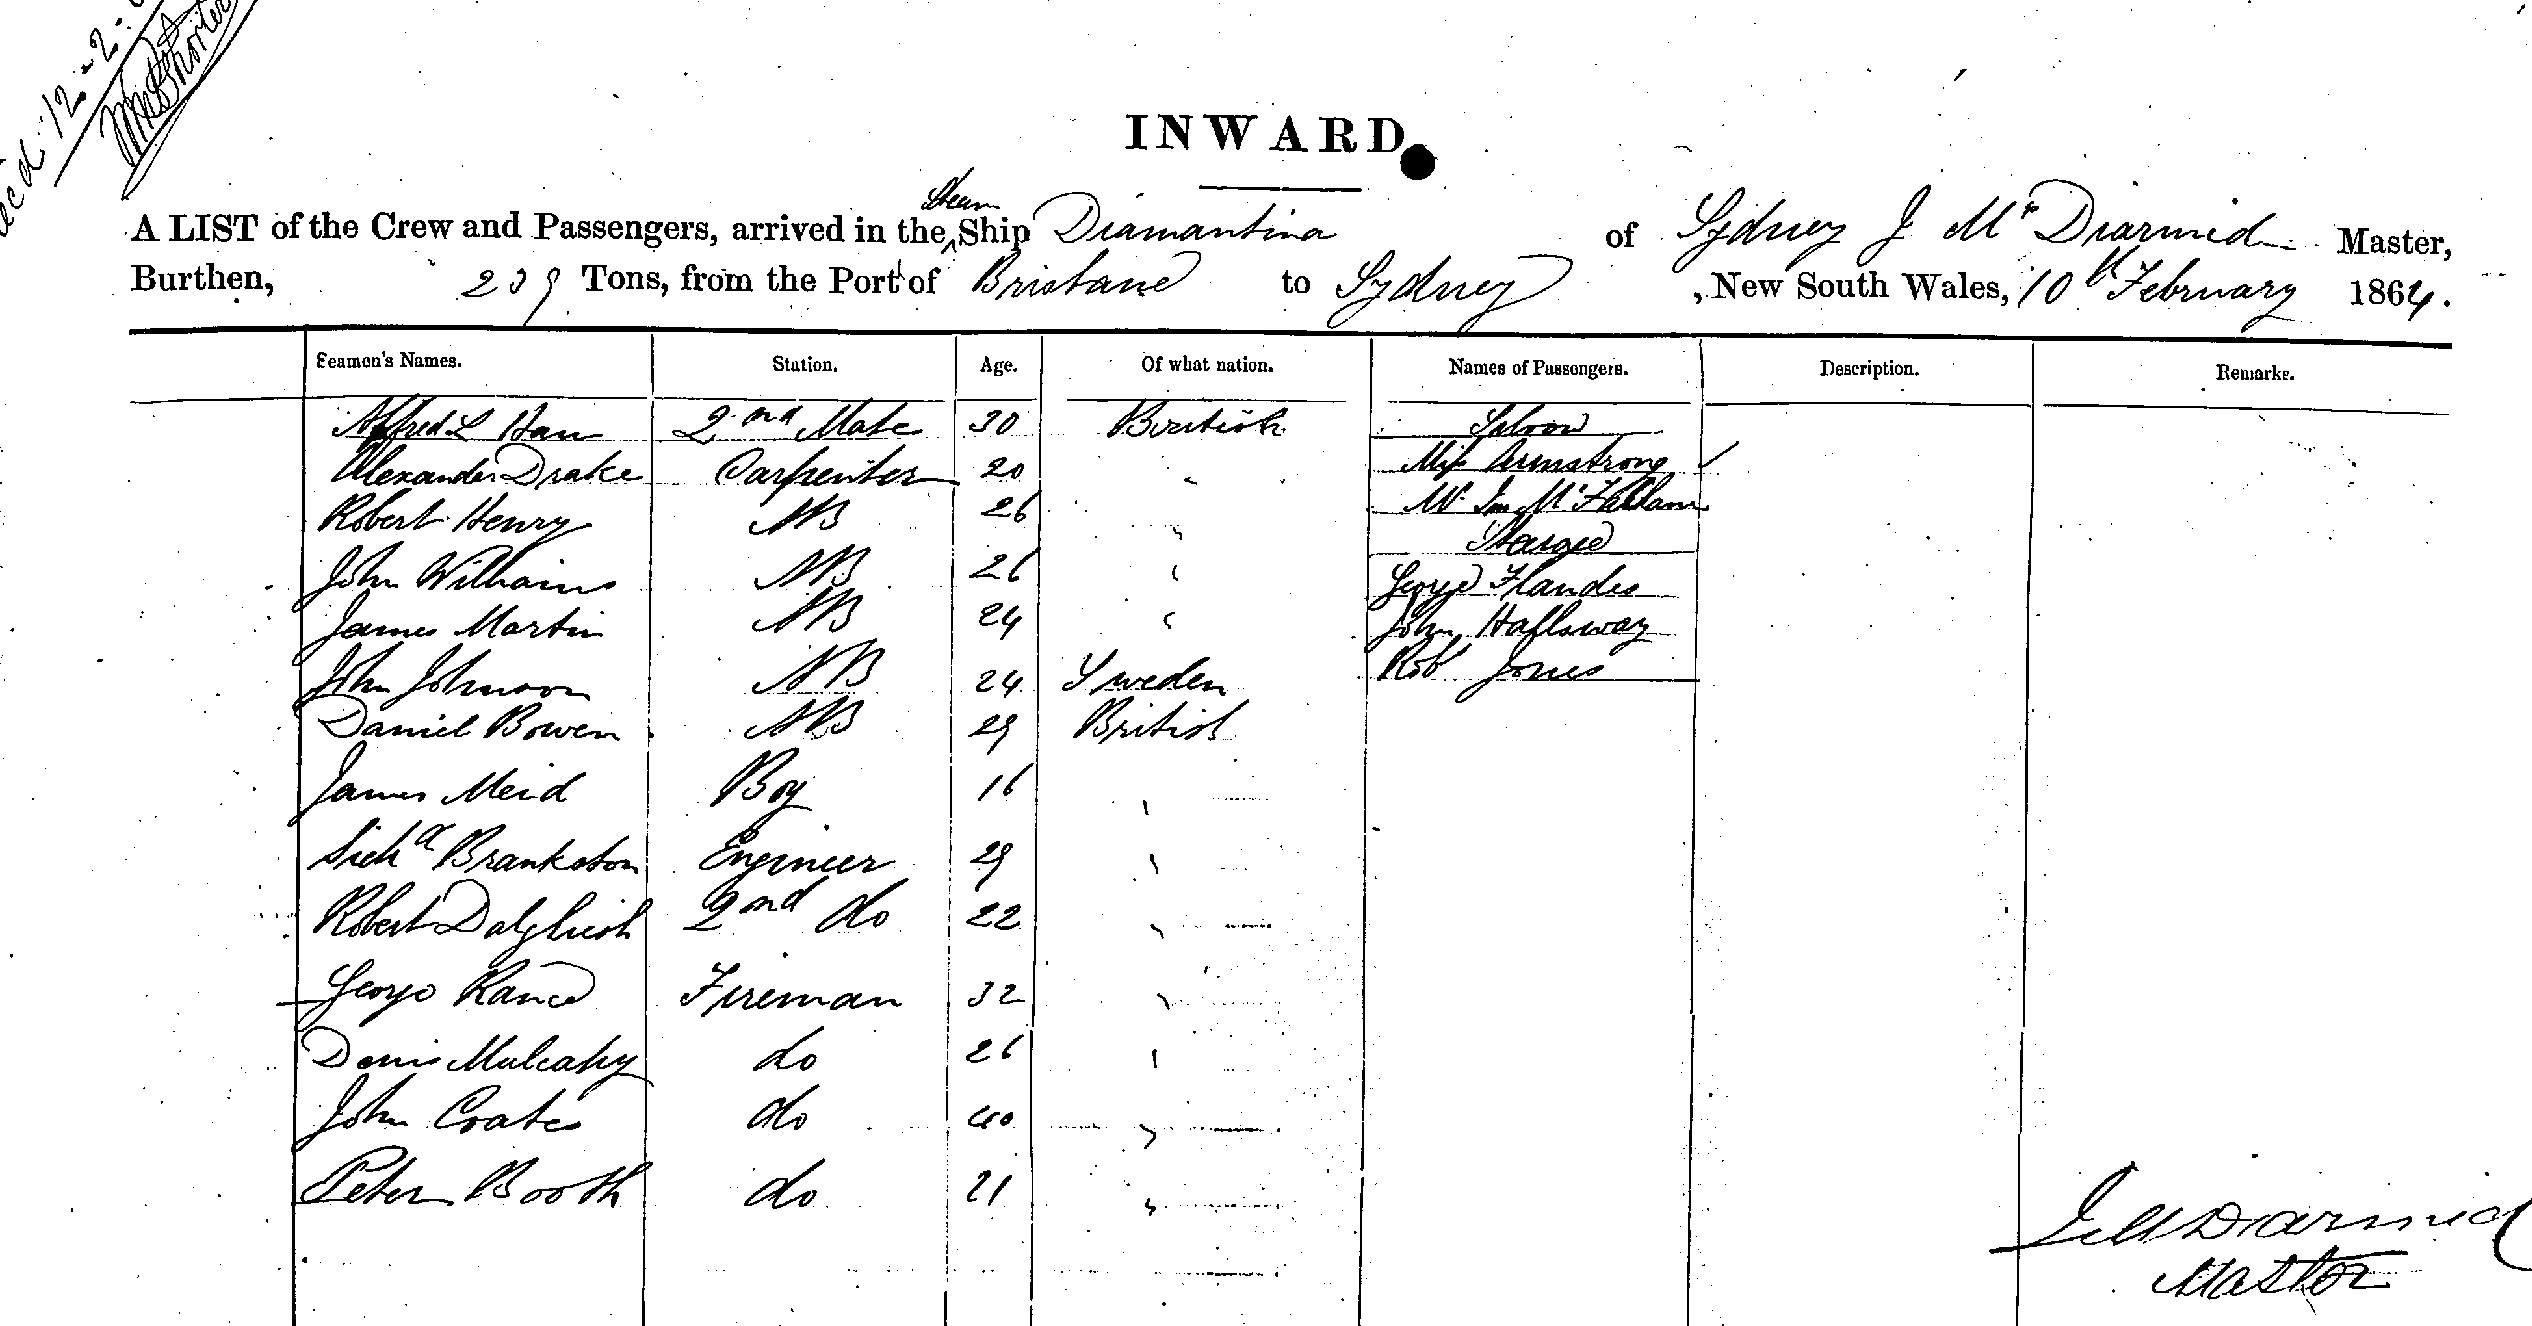 12-2-
INWARD.
Steam
A LIST of the Crew and Passengers, arrived in the Ship Diamantina of Sydney J McDiarmid Master,
Burthen, 239 Tons, from the Port of Brisbane to Sydney, New South Wales, 10th February 1864.
Seamen's Names. Station. Age. Of what nation. Names of Passengers. Description. Remarks.
Alfred L 2nd Mate 30 British Saloon
Alexander Drake Carpenter 20 " Miss Armstrong
Robert Henry AB 26 " Mr
John Williams AB 26 " Steerage
James Martin AB 24 " George Flandes
John Johnson AB 24 Sweden John
Daniel Bowen AB 29 British Robt Jones
James Meid Boy 16 "
Brankston Engineer 29 "
Robert Dalgliesh 2nd do 22 "
George Rance Fireman 32 "
Denis Mulcahy do 26 "
John Coates do 40 "
Peter Booth do 21 "
J McDiarmid
Master